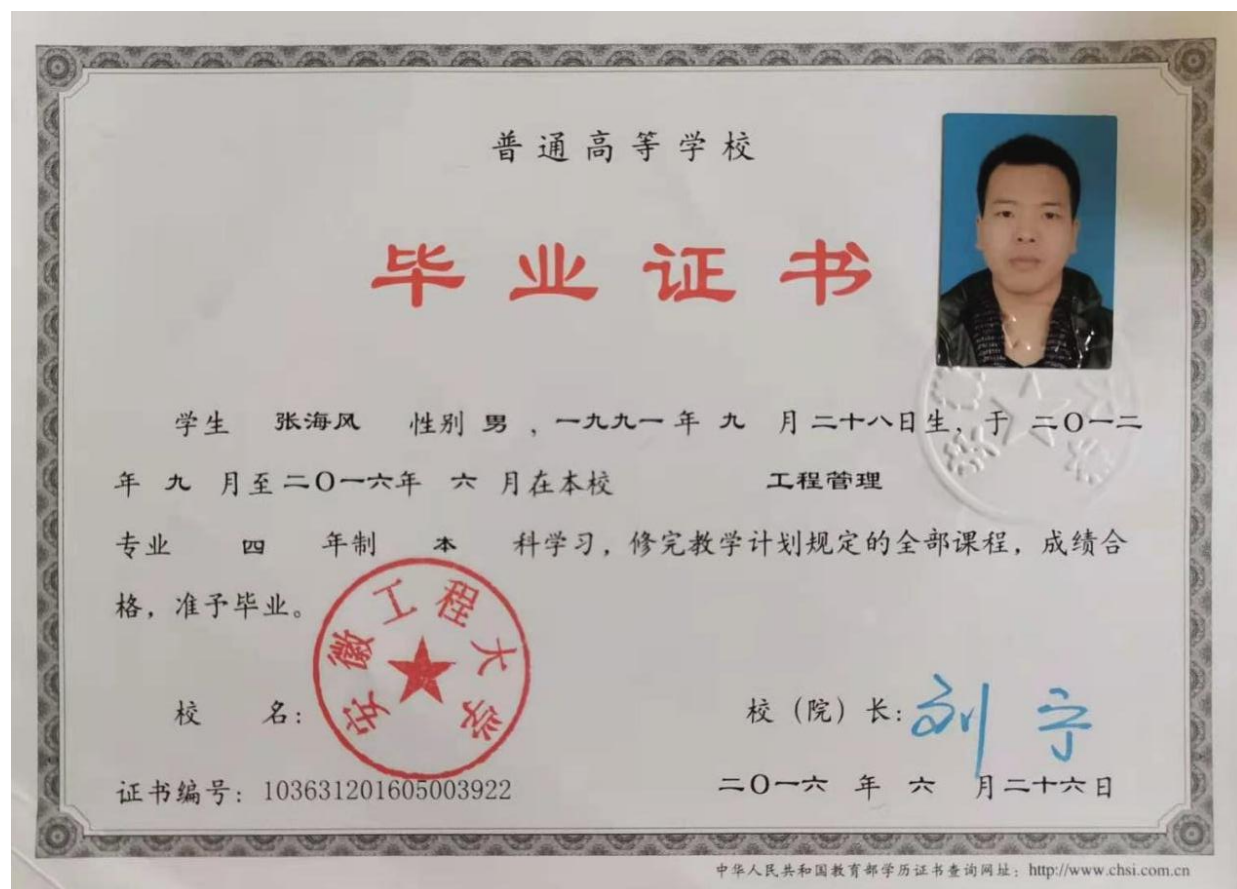 普通高等学校
毕业证书
学生 张海风 性别 男 ，一九九一 年 九 月 二十八日生，于 二〇一二
年 九 月至 二〇一六年 六 月在本校 工程管理
专业 四 年制 本 科学习，修完教学计划规定的全部课程，成绩合
格，准予毕业。
安徽工程大学
校 名：
校（院）长：刘宁
证书编号：103631201605003922
二〇一六 年 六 月二十六日
中华人民共和国教育部学历证书查询网址：http://www.chsi.com.cn